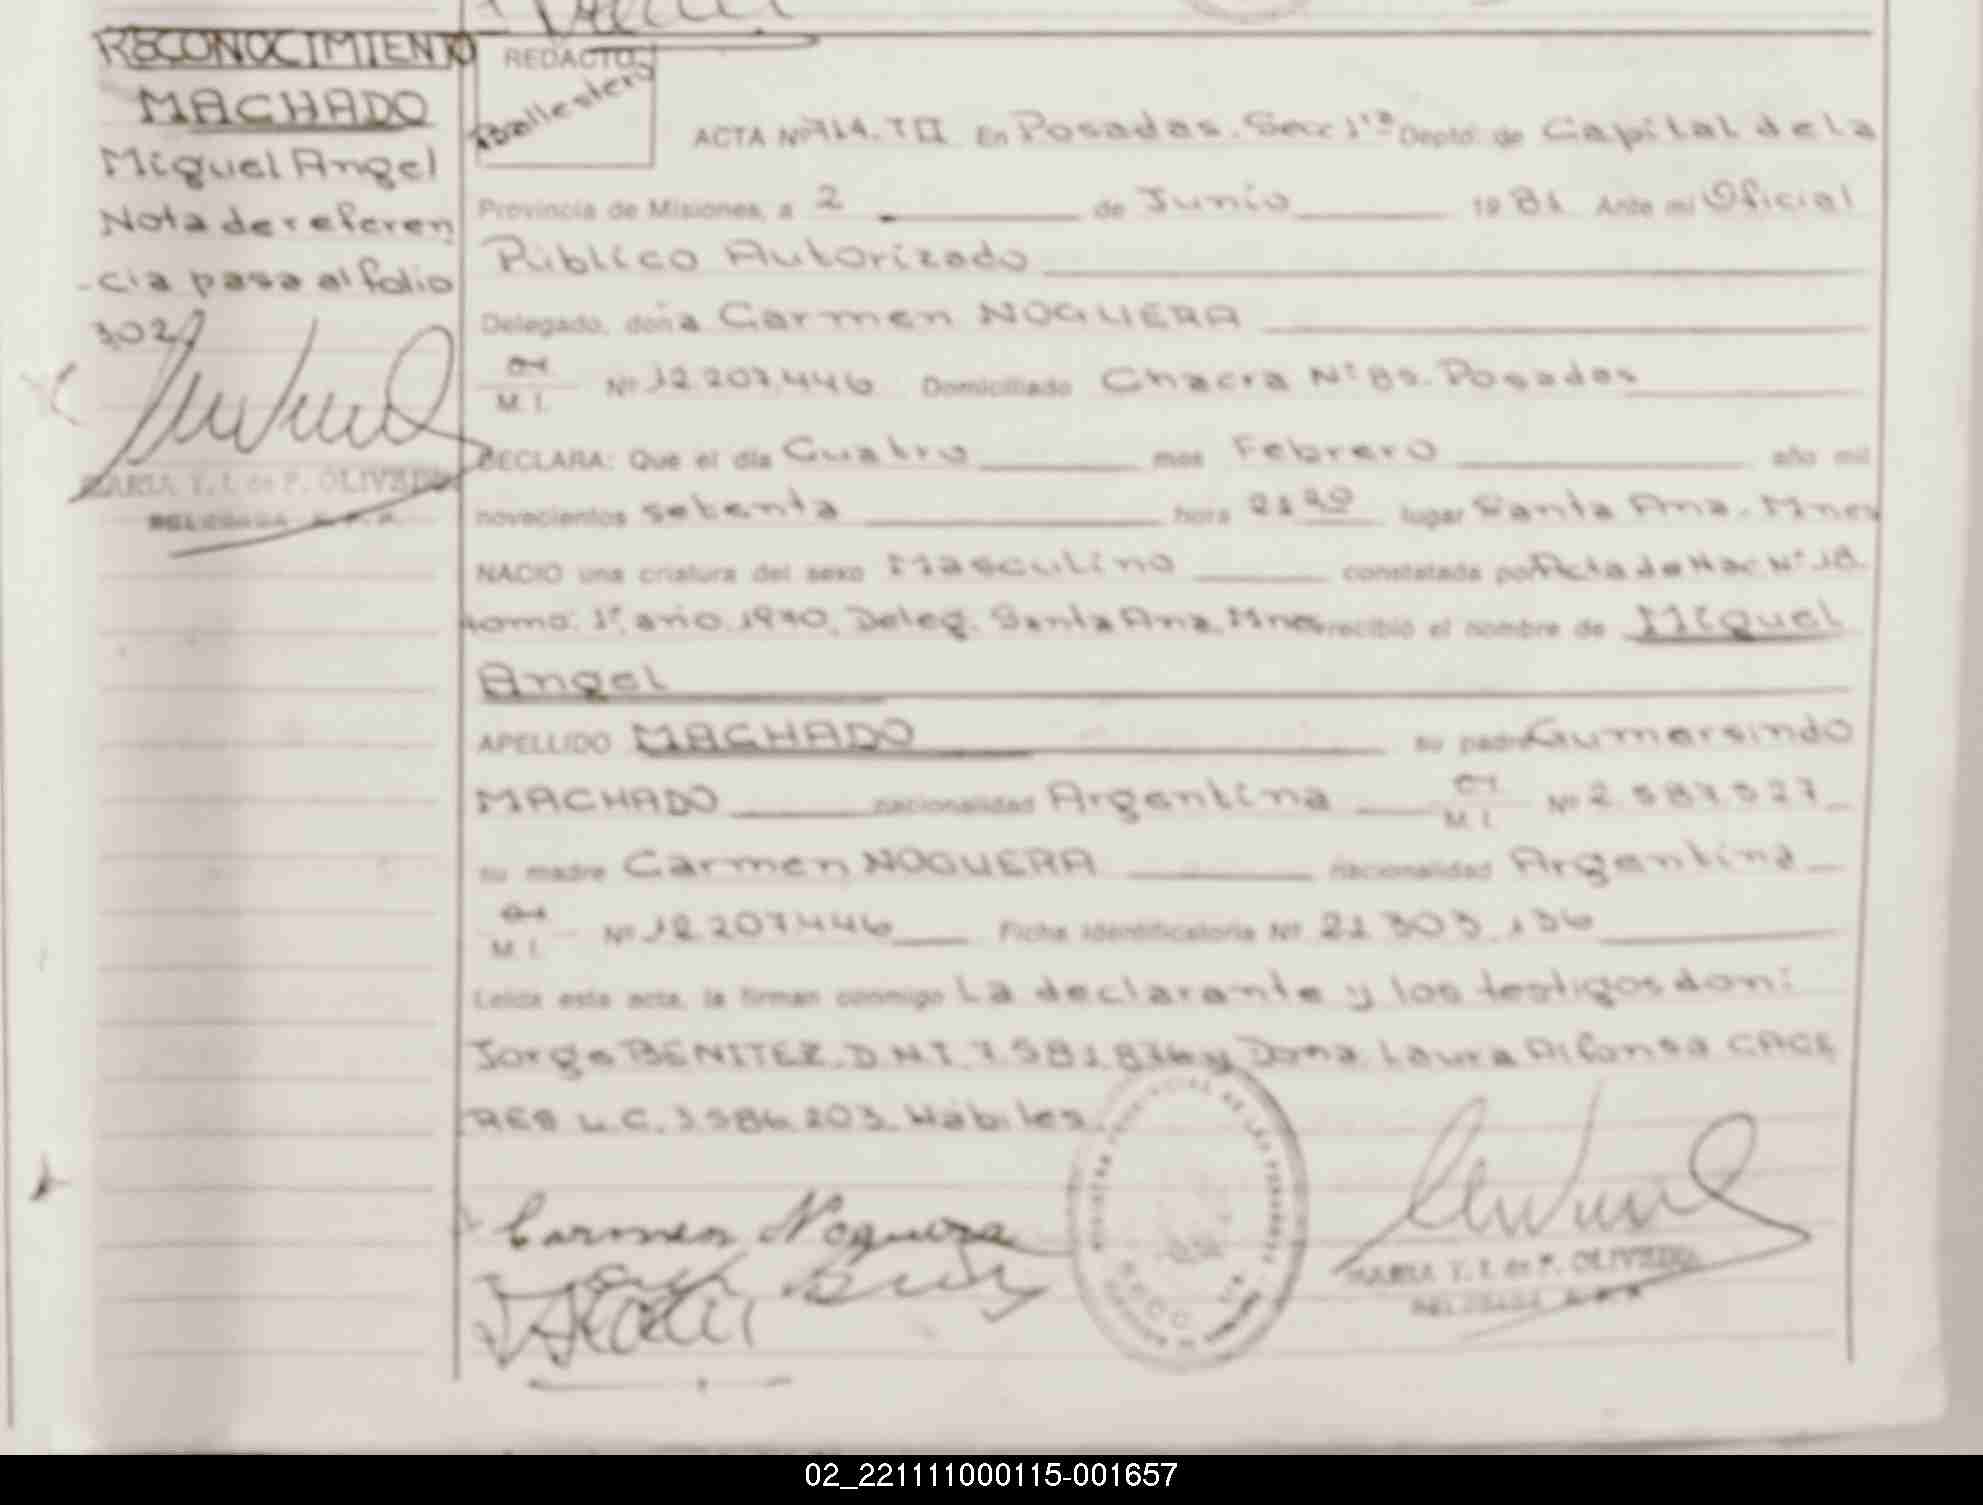 RECONOCIMIENTO
MACHADO
Miguel Angel
Nota de referen
-cia pasa al folio
302
MARIA Y. I. de P. OLIVEIRA
DELEGADA
REDACTO
Ballestero
ACTA Nº 714. T II En Posadas. Secc 1ra Depto. de Capital de la
Provincia de Misiones, a 2 de Junio 1981 Ante mi Oficial
Público Autorizado
Delegado, doña Carmen NOGUERA
M. I. Nº 12.207.446 Domiciliado Chacra Nº 89. Posadas
DECLARA: Que el día Cuatro mes Febrero año mil
novecientos setenta hora 21 20 lugar Santa Ana. Mnes
NACIO una criatura del sexo Masculino constatada por Acta de Nac Nº 18.
tomo: 1º, año 1970, Deleg. Santa Ana, Mnes recibió el nombre de Miguel
Angel
APELLIDO MACHADO su padre Gumersindo
MACHADO nacionalidad Argentina M. I. Nº 2.587.527
su madre Carmen NOGUERA nacionalidad Argentina
M. I. Nº 12.207.446 Ficha Identificatoria Nº 21.303.136
Leída esta acta, la firman conmigo La declarante y los testigos don:
Jorge BENITEZ. D.N.I. 7.581.876 y Doña Laura Alfonsa CACE
RES L.C. 3.586.203. Hábiles.
Carmen Noguera
MARIA Y. I. de P. OLIVEIRA
DELEGADA
02_221111000115-001657